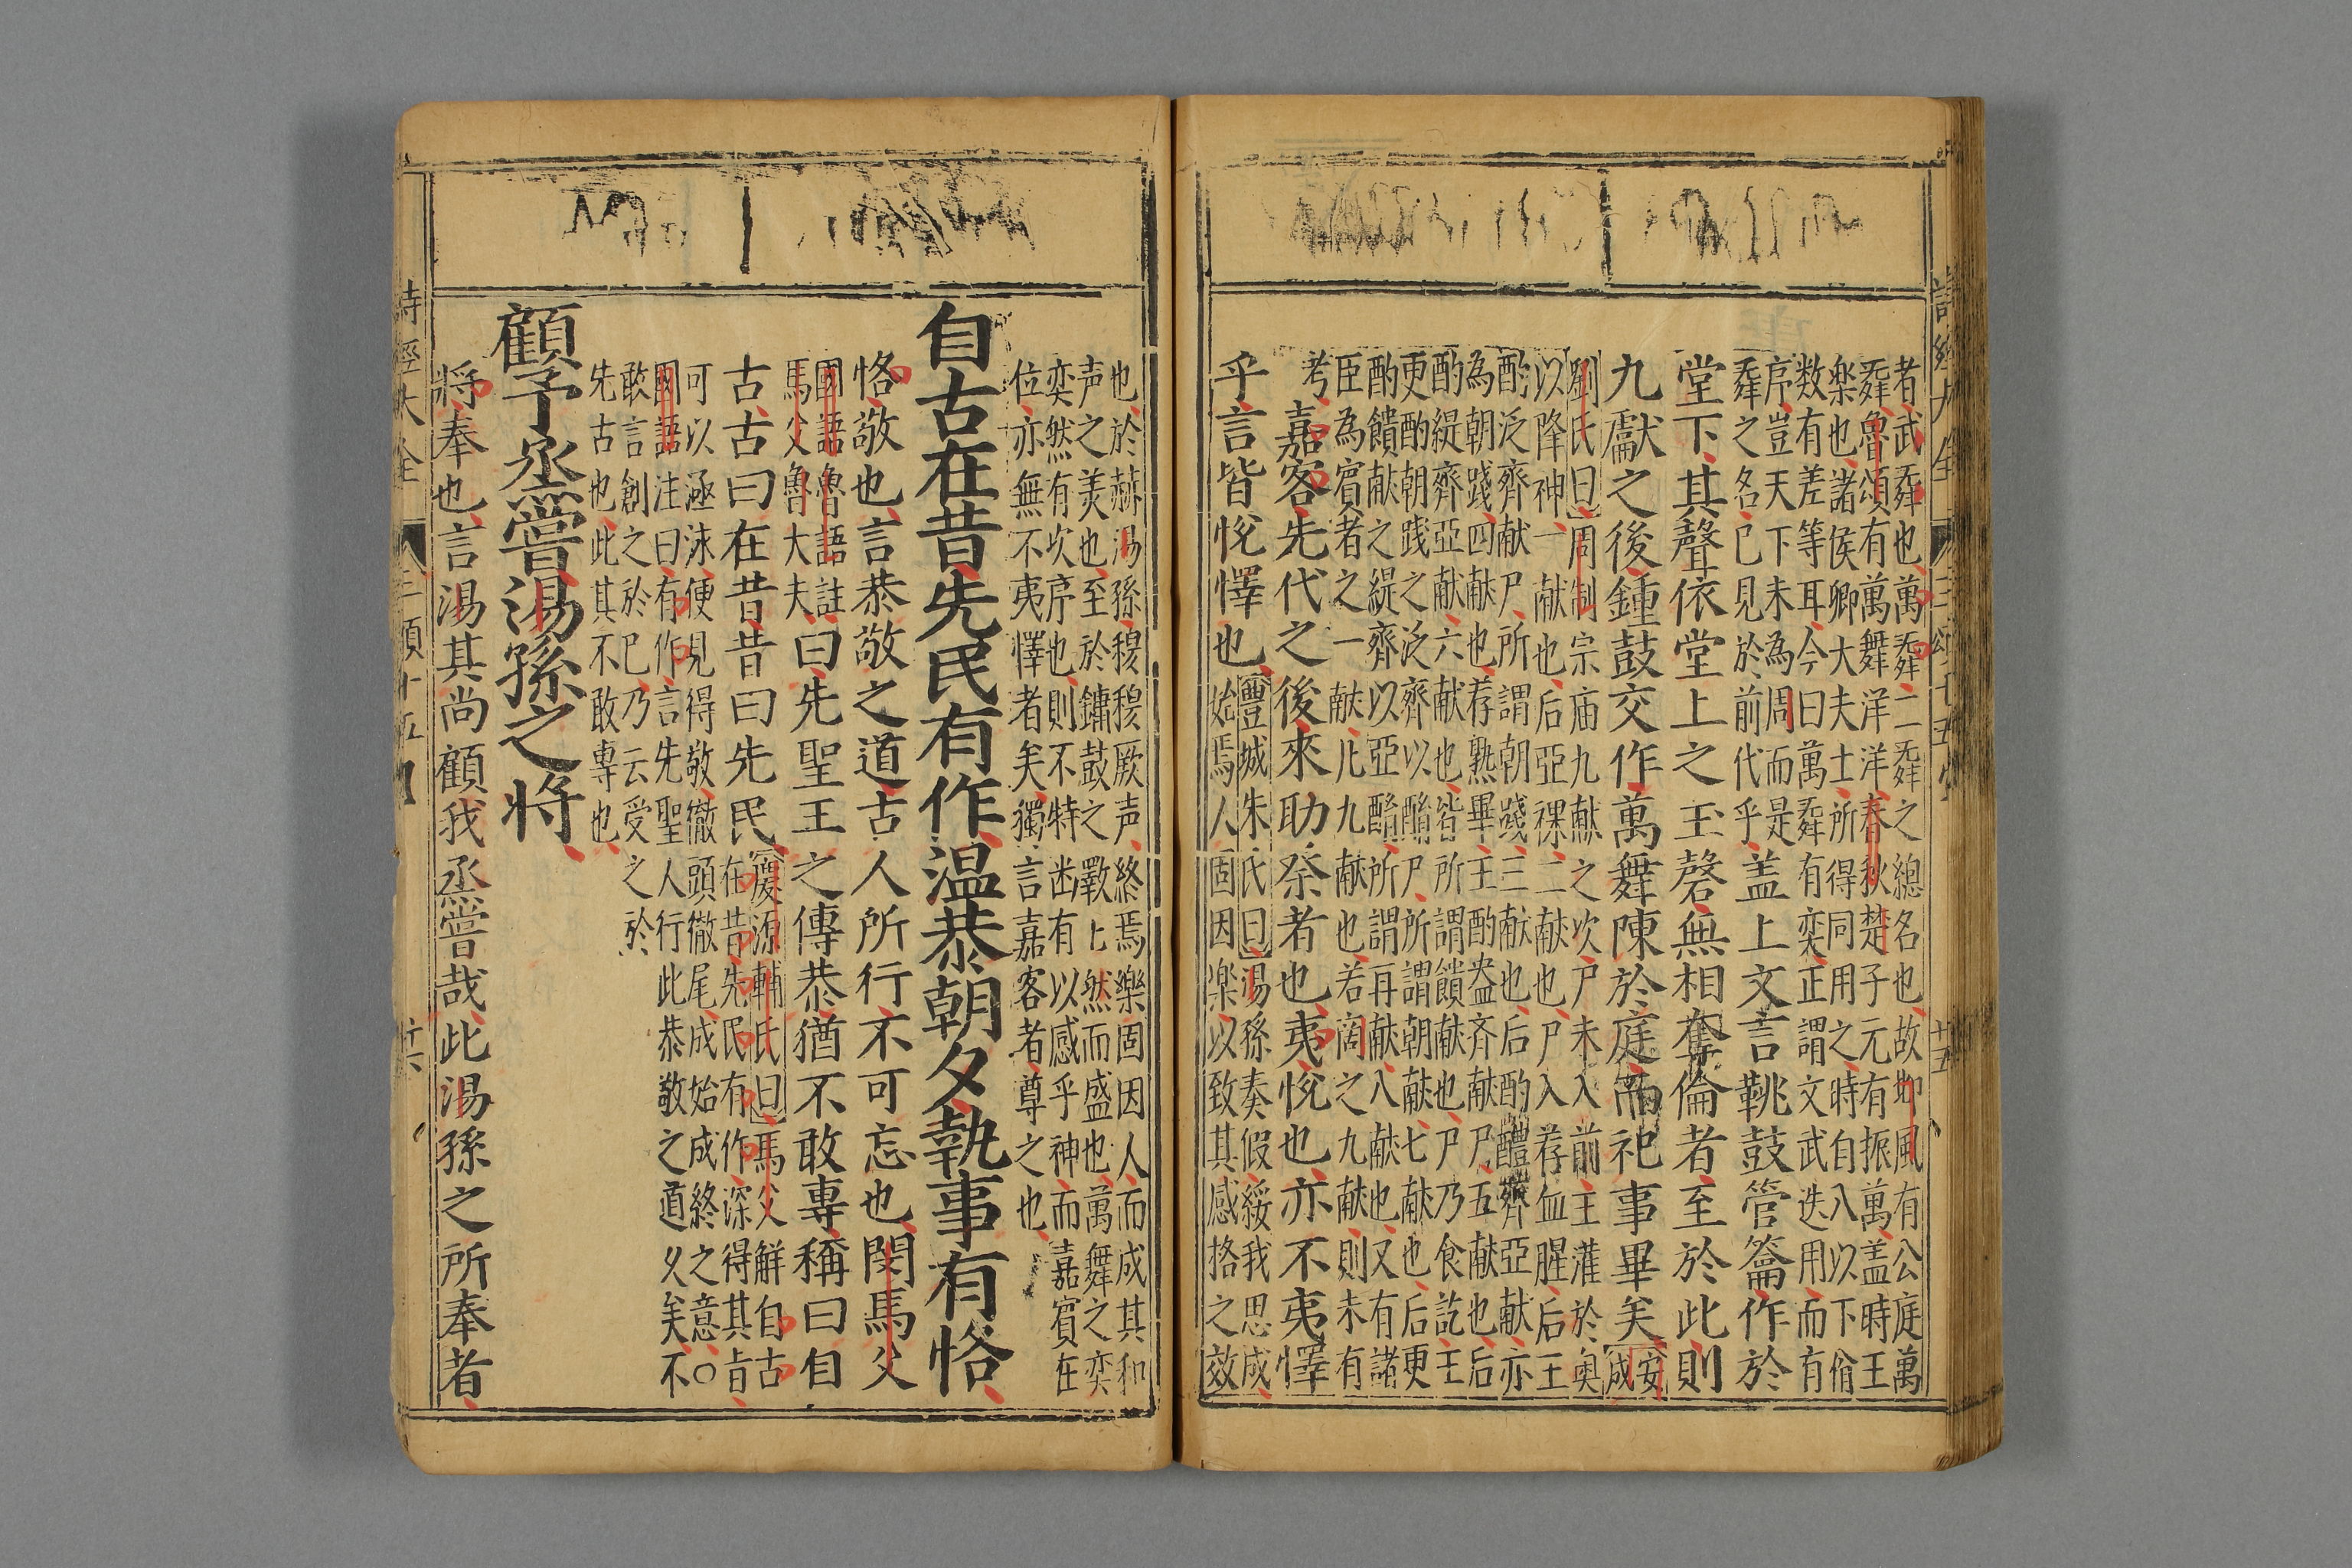 者武舜也萬舜二舜之總名也故邶風有公庭萬
舜魯頌有萬舞洋洋春秋楚子元有振萬盖時王
楽也諸侯卿大夫士所得同用之時自八以下俏
数有差等耳今曰萬舜有奕正謂文武迭用而有
序豈天下未為周而是
舜之名已見於前代乎盖上文言鞉鼓管籥作於
堂下其聲依堂上之玉磬無相奪倫者至於此則
九獻之後鍾鼓交作萬舞陳於庭而祀事畢矣安成
劉氏曰周制宗庙九献之次尸未入前王灌於奥
以降神一献也后亞祼二献也尸入荐血腥后王
酌泛齊献尸所謂朝踐三献也后酌醴齊亞献亦
為朝踐四献也荐熟畢王酌盎齐献尸五献也后
酌緹齊亞献六献也皆所謂饋献也尸乃食訖王
更酌朝踐之泛齊以酳尸所謂朝献七献也后更
酌饋献之緹齊以亞酳所謂再献八献也又有諸
臣為賓者之一献凢九献也若阔之九献則未有
考
嘉客先代之後來助祭者也夷悅也亦不夷懌
乎言皆悅懌也豐城朱氏曰湯孫奏假綏我思成
始焉人固因楽以致其感格之效
詩經大全
三頌十五卷
十五
也於赫湯孫穆穆厥声終焉樂固因人而成其和
声之羙也至於鏞鼓之斁上然而盛也萬舞之奕
奕然有次序也則不特幽有以感乎神而嘉賓在
位亦無不夷懌者矣獨言嘉客者尊之也
自古在昔先民有作温恭朝夕執事有恪
恪敬也言恭敬之道古人所行不可忘也閔馬父
國語魯語註
馬父魯大夫曰先聖王之傳恭猶不敢專稱曰自
古古曰在昔昔曰先民慶源輔氏曰馬父觧自古
在昔先民有作深得其旨
可以涵泳便見得敬徹頭徹尾成始成終之意〇
國語注曰有作言先聖人行此恭敬之道久矣不
敢言創之於已乃云受之於
先古也此其不敢專也
顧予烝嘗湯孫之將
將奉也言湯其尚顧我烝嘗哉此湯孫之所奉者
詩經大全
三頌十五
十六